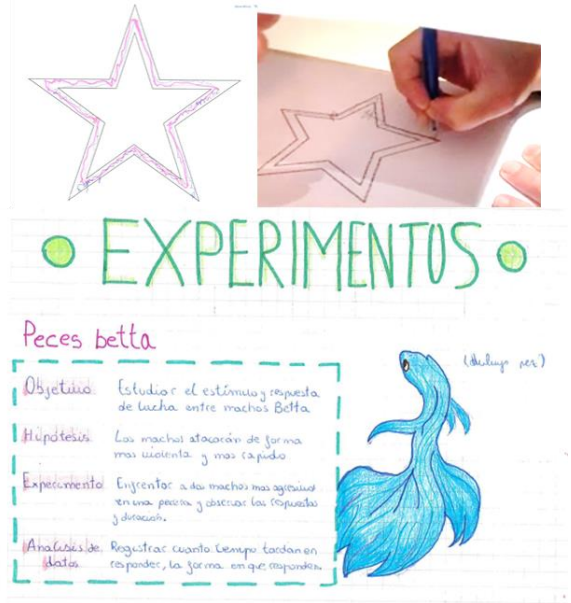 EXPERIMENTOS
Peces betta
(dibujo pez)
Objetivo Estudiar el estímulo y respuesta
de lucha entre machos Betta
Hipótesis Los machos atacarán de forma
mas violenta y mas rapido
Experimento Enfrentar a dos machos mas agresivos
en una pecera y observar las respuestas
y duración.
Analisis de Registrar cuanto tiempo tardan en
datos responder, la forma en que responden.